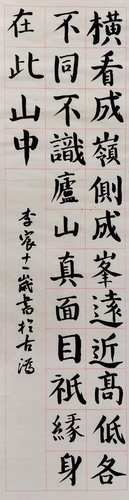 橫看成嶺側成峯遠近高低各
不同不識廬山真面目祇緣身
在此山中
李宸十一歲書於古滘